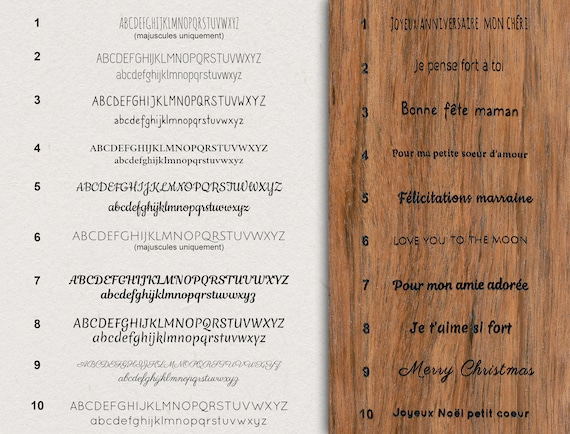 1 ABCDEFGHIJKLMNOPQRSTUVWXYZ
(majuscules uniquement)
2 ABCDEFGHIJKLMNOPQRSTUVWXYZ
abcdefghijklmnopqrstuvwxyz
3 ABCDEFGHIJKLMNOPQRSTUVWXYZ
abcdefghijklmnopqrstuvwxyz
4 ABCDEFGHIJKLMNOPQRSTUVWXYZ
abcdefghijklmnopqrstuvwxyz
5 ABCDEFGHIJKLMNOPQRSTUVWXYZ
abcdefghijklmnopqrstuvwxyz
6 ABCDEFGHIJKLMNOPQRSTUVWXYZ
(majuscules uniquement)
7 ABCDEFGHIJKLMNOPQRSTUVWXYZ
abcdefghijklmnopqrstuvwxyz
8 ABCDEFGHIJKLMNOPQRSTUVWXYZ
abcdefghijklmnopqrstuvwxyz
9 ABCDEFGHIJKLMNOPQRSTUVWXYZ
abcdefghijklmnopqrstuvwxyz
10 ABCDEFGHIJKLMNOPQRSTUVWXYZ
abcdefghijklmnopqrstuvwxyz
1 JOYEUX ANNIVERSAIRE MON CHÉRI
2 Je pense fort à toi
3 Bonne fête maman
4 Pour ma petite soeur d'amour
5 Félicitations marraine
6 LOVE YOU TO THE MOON
7 Pour mon amie adorée
8 Je t'aime si fort
9 Merry Christmas
10 Joyeux Noël petit coeur